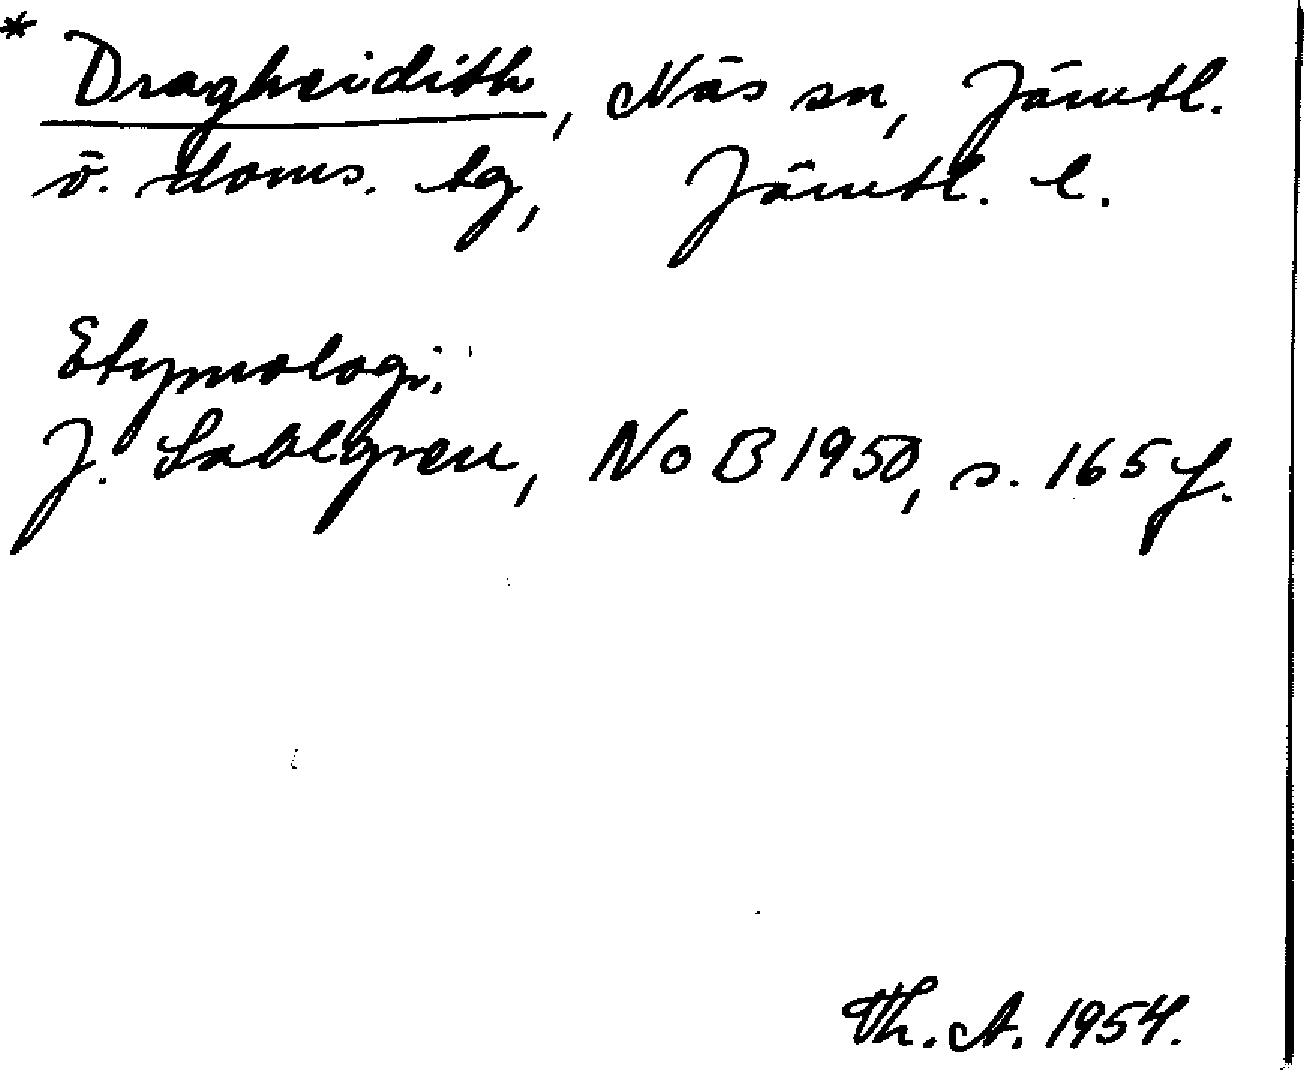 * Dragheidith, Näs sn, Jämtl.
ö. doms. tg, Jämtl. l.
Etymologi.
J. Sahlgren, NoB 1950, s. 165 f.
Th. A. 1954.